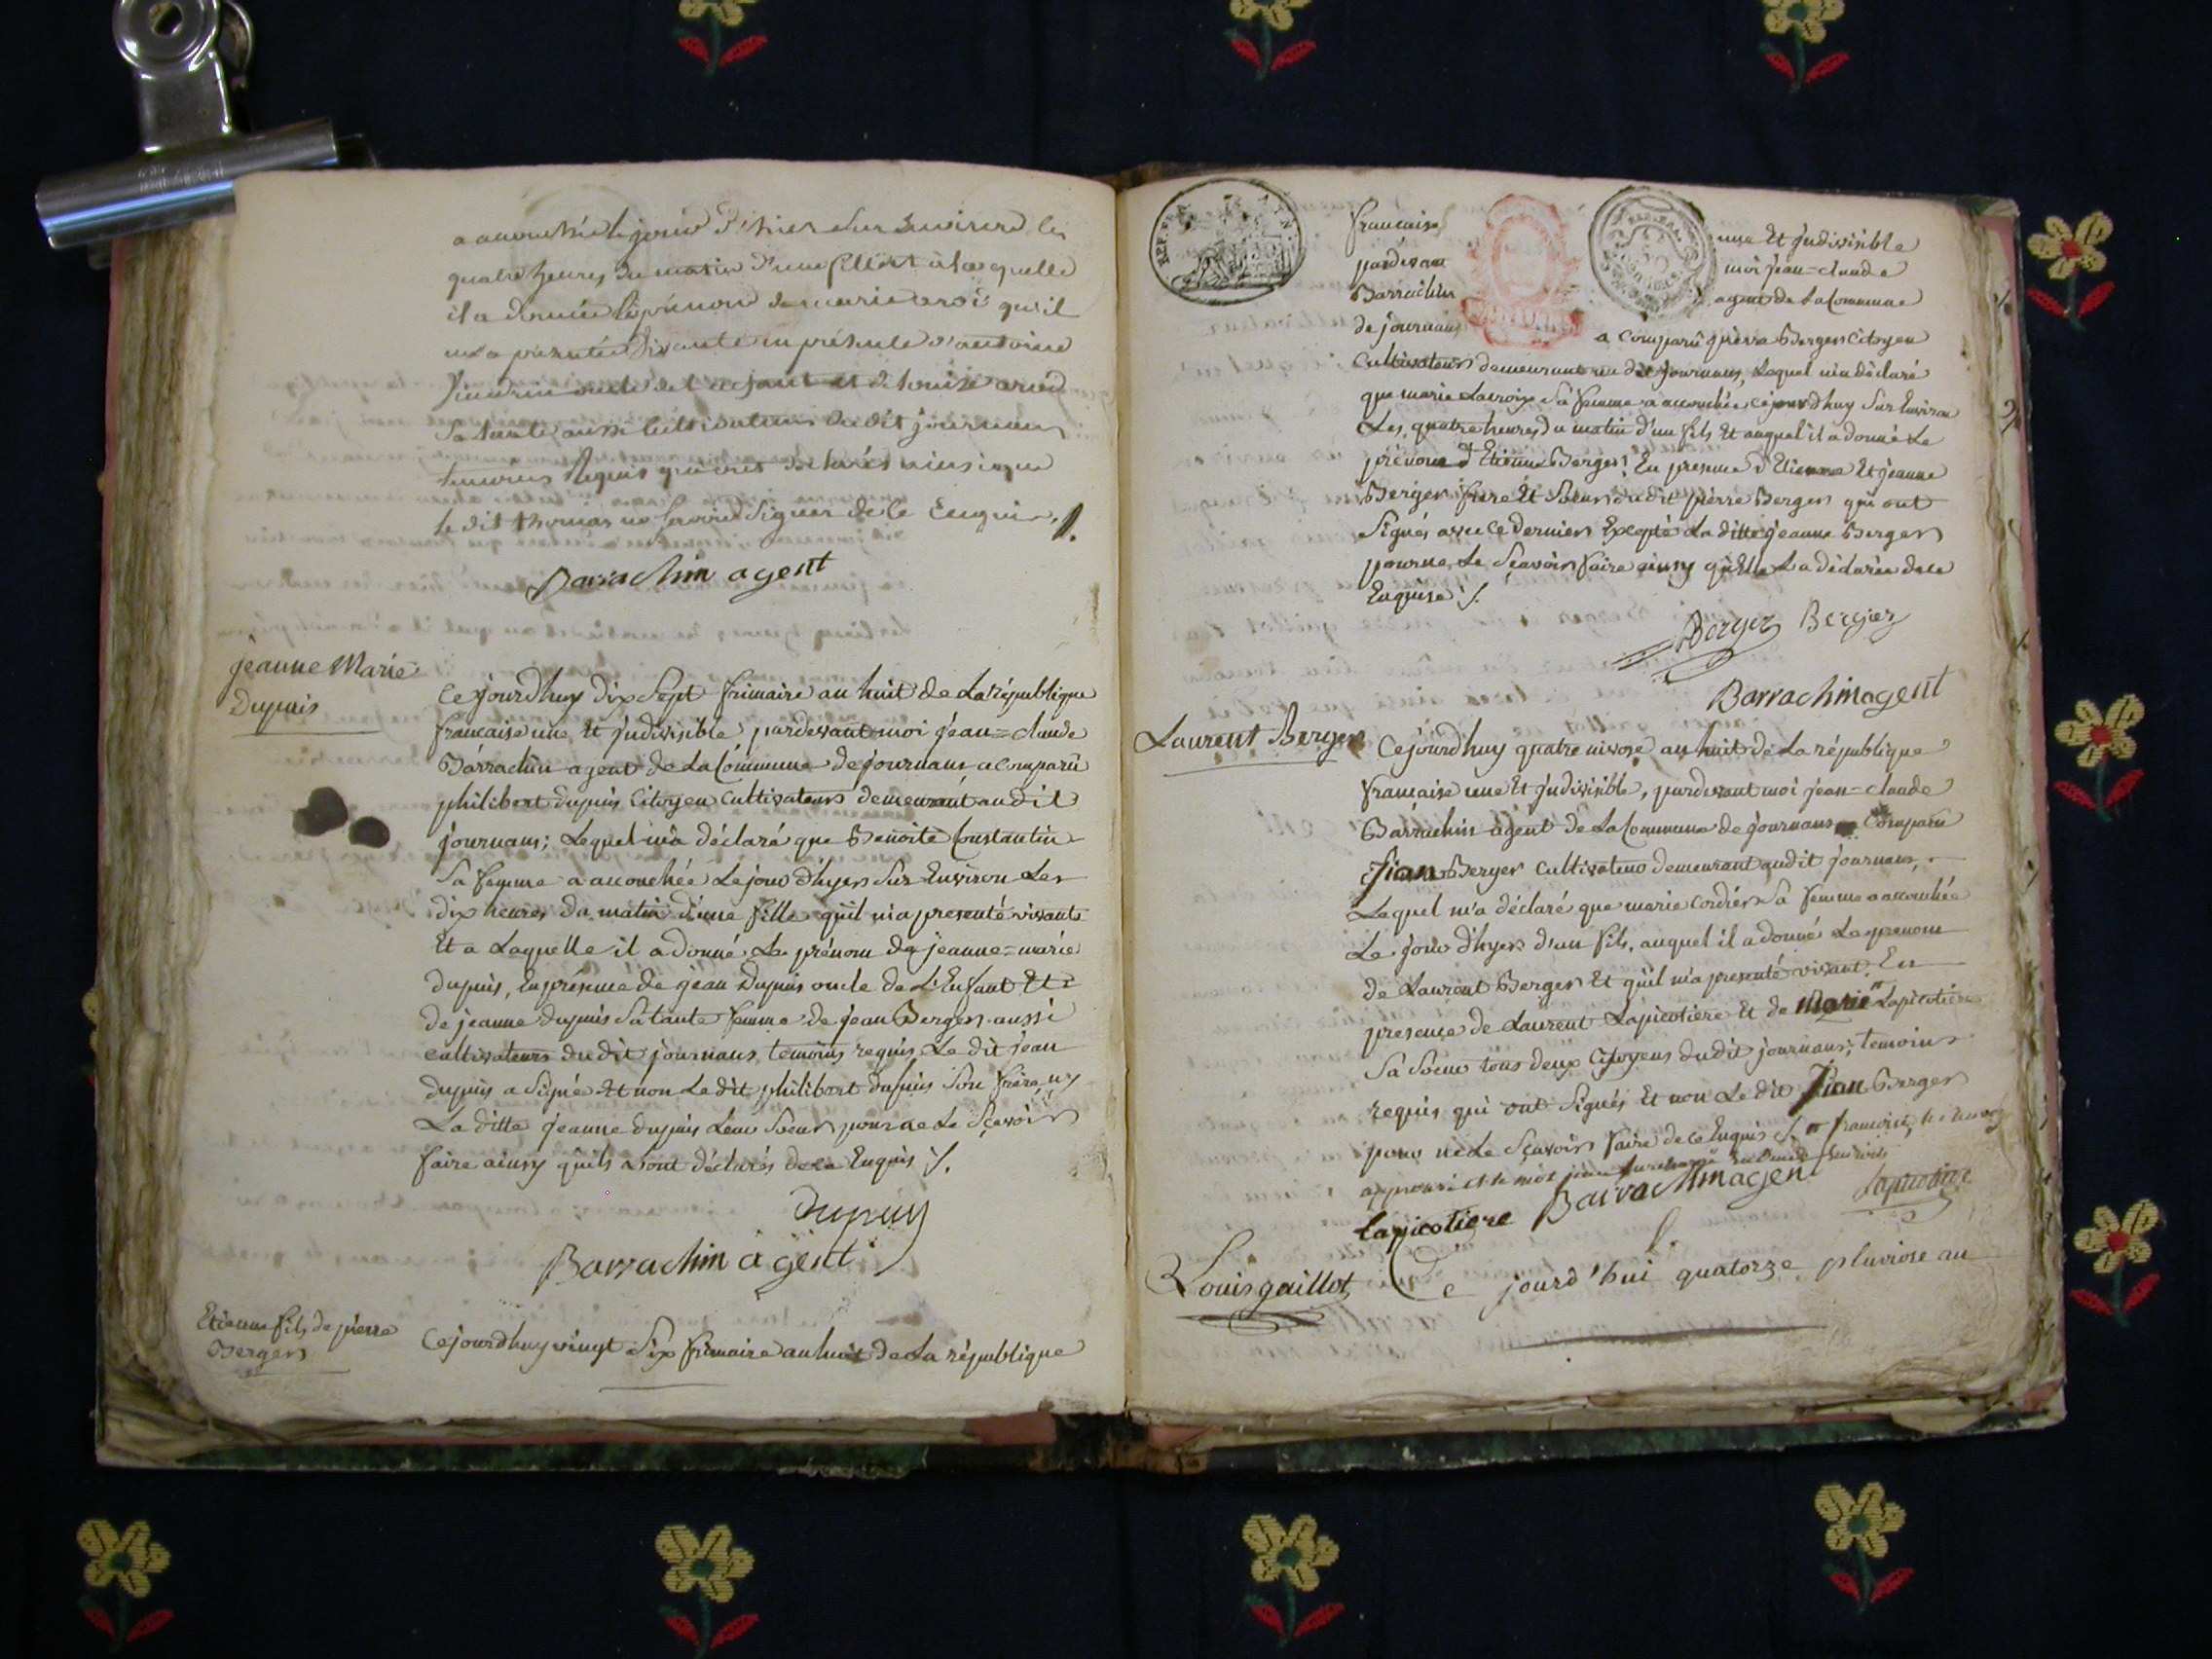 a accouchée le jour d'hier sur environ les
quatre heures du matin d'une fille et à la quelle
il a donnée le prénom de marie qu'il
m'a presentée vivante en présence d'antoine
oncle de l'enfant et de louise
sa tante aussi cultivateurs dudit journans
temoins requis qui ont declarés ainsi que
le dit thomas ne savoir signer de ce enquis ./.
Barrachin agent
jeanne Marie
Dupuis
Ce jourdhuy dix sept frimaire an huit de La république
francaise une Et jndivisible pardevant moi jean=claude
Barrachin agent de La Commune de journans a comparu
philibert dupuis Citoyen Cultivateurs demeurant audit
journans; Lequel m'a déclaré que Benoite Constantin
Sa femme a accouchée Le jour d'hyer Sur Environ Les
dix heures du matin d'une fille qu'il m'a presenté vivante
Et a Laquelle il a donné Le prénom de jeanne=marie
dupuis, En présence de jean Dupuis oncle de L'Enfant Et
de jeanne dupuis Sa tante femme de jean Berger aussi
cultivateurs dudit journans temoins requis Le dit jean
dupuis a Signé Et non Le dit philibert dupuis Son frère ny
La ditte jeanne dupuis Leur Soeur pour ne Le Sçavoir
faire ainsy qu'ils L'ont déclarés de ce Enquis ./.
Dupuis
Barrachin agent
Etienne fils de pierre
Berger
Ce jourdhuy vingt Six frimaire an huit de La république
francaise une Et jndivisible
pardevant moi jean=claude
Barrachin agent de La Commune
de journans a comparu pierre Berger Citoyen
Cultivateurs demeurant au dit journans, Lequel m'a déclaré
que marie Lacroix Sa femme a accouchée cejourdhuy Sur Environ
Les quatre heures du matin d'un fils Et auquel il a donné Le
prénom d'Etienne Berger, En presence d'Etienne Et jeanne
Berger frere Et Soeur dudit pierre Berger qui ont
Signés avec Ce dernier Excepté La ditte jeanne Berger
pour ne Le Sçavoir faire ainsy qu'Elle L'a déclarée de ce
Enquise ./.
Berger Bergier
Barrachin agent
Laurent Berger
Ce jourdhuy quatre nivose an huit de La république
francaise une Et jndivisible, pardevant moi jean=claude
Barrachin agent de La Commune de journans a Comparu
Jean Berger Cultivateur demeurant audit journans,
Lequel m'a déclaré que marie Cordier Sa femme a accouchée
Le jour d'hyer d'un fils, auquel il a donné Le prenom
de Laurent Berger Et qu'il m'a presenté vivant. En
presence de Laurent Lapicotiere Et de Marie Lapicotiere
Sa Soeur tous deux Citoyens dudit journans; temoins
requis qui ont Signés Et non Le dit Jean Berger
pour ne Le Sçavoir faire de ce Enquis ./. francoise
approuvé et le mot jean surchargé
Lapicotiere Barrachin agent Lapicotiere
Louis gaillot
Ce jourd'hui quatorze pluviose an